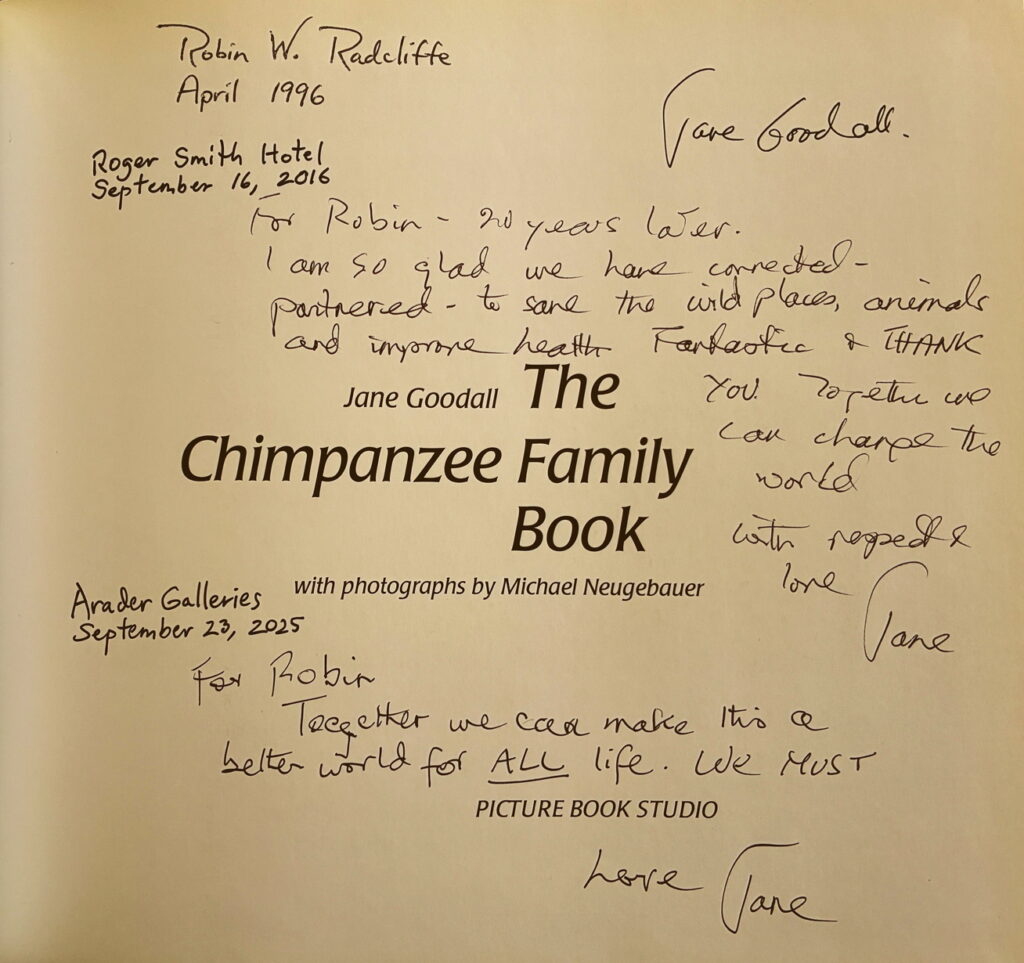 Robin W. Radcliffe
April 1996
Jane Goodall.
Roger Smith Hotel
September 16, 2016
For Robin - 20 years later.
I am so glad we have connected -
partnered - to save the wild places, animals
and improve health Fantastic & THANK
YOU. Together we
can change the
world
with respect &
love
Jane
Jane Goodall The
Chimpanzee Family
Book
with photographs by Michael Neugebauer
Arader Galleries
September 23, 2025
For Robin
Together we can make this a
better world for ALL life. We MUST
PICTURE BOOK STUDIO
Love Jane